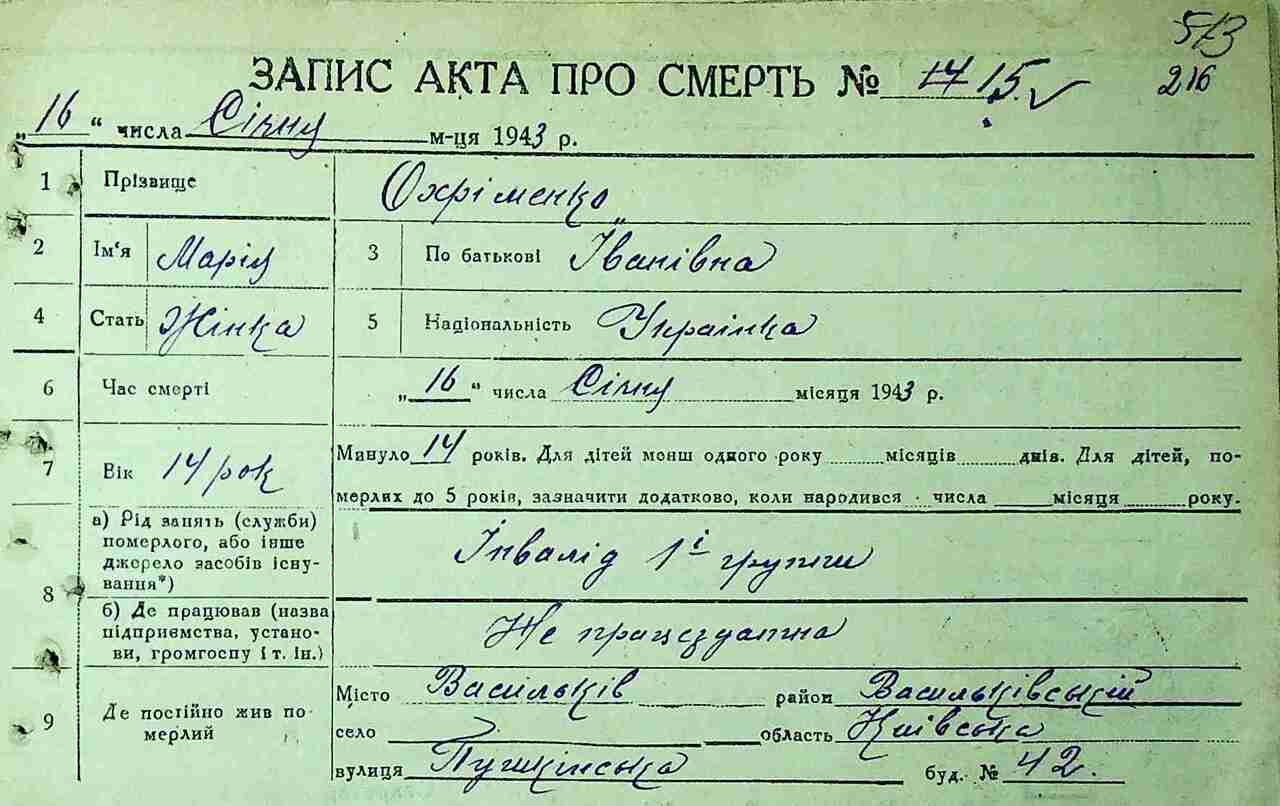 513
ЗАПИС АКТА ПРО СМЕРТЬ № 14 15
216
„16“ числа Січня м-ця 1943 р.
1 Прізвище Охріменко
2 Ім‘я Марія 3 По батькові Іванівна
4 Стать Жінка 5 Національність Украінка
6 Час смерті „16“ числа Січня місяця 1943 р.
7 Вік 14 рок Минуло 14 років. Для дітей менш одного року місяців днів. Для дітей, по-
мерлих до 5 років, зазначити додатково, коли народився числа місяця року.
8 а) Рід занять (служби)
померлого, або інше
джерело засобів існу-
вання*)
Інвалід 1ї групи
б) Де працював (назва
підприємства, устано-
ви, громгоспу і т. ін.)
Не працездатна
9 Де постійно жив по-
мерлий
Місто Васильків район Васильківській
село область Київська
вулиця Пушкінська буд. № 42.